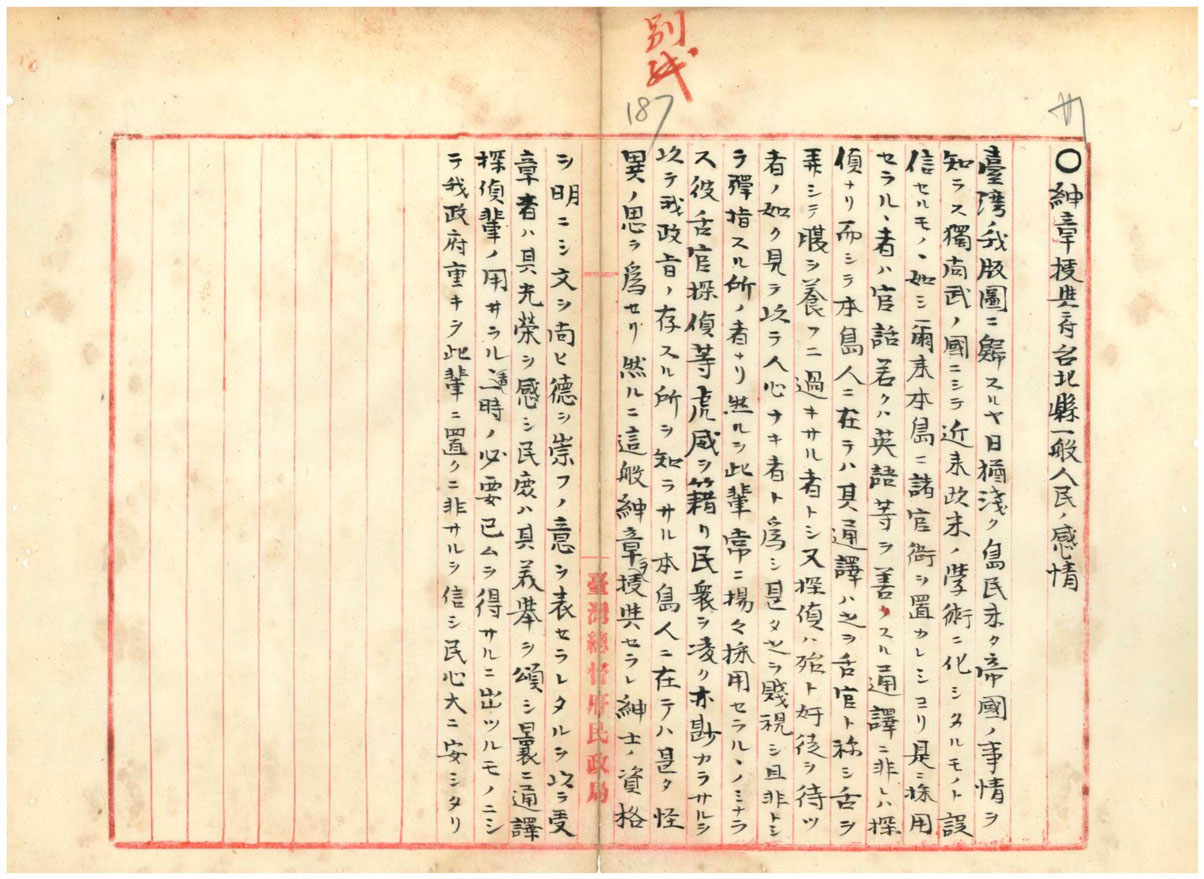 別紙
187
廿一
〇紳章授與ニ付台北縣一般人民ノ感情
臺湾ノ我版圖ニ歸スルヤ日猶淺ク島民未タ帝國ノ事情ヲ
知ラス獨尚武ノ國ニシテ近来欧米ノ學術ニ化シタルモノト誤
信セルモノヽ如シ爾来本島ニ諸官衙ヲ置カレシヨリ是ニ採用
セラルヽ者ハ官話若クハ英語等ヲ善クスル通譯ニ非レハ探
偵ナリ而シテ本島人ニ在テハ其通譯ハ之ヲ舌官ト称シ舌ヲ
弄シテ腹ヲ養フニ過キサル者トシ又探偵ハ殆ト奸徒ヲ待ツ
者ノ如ク見テ以テ人心ナキ者ト為シ甚タ之ヲ賤視シ且非トシ
テ彈指スル所ノ者ナリ然ルヲ此輩常ニ揚々採用セラルヽノミナラ
ス役舌官探偵等虎威ヲ籍リ民衆ヲ凌ク亦尠カラサルヲ
以テ我政旨ノ存スル所ヲ知ラサル本島人ニ在テハ甚タ怪
異ノ思ヲ為セリ然ルニ這般紳章ヲ授與セラレ紳士ノ資格
ヲ明ニシ文ヲ尚ヒ德ヲ崇フノ意ヲ表セラレタルヲ以テ受
章者ハ其光榮ヲ感シ民庶ハ其美舉ヲ頌シ曩ニ通譯
探偵輩ノ用ヰラルヽ適時ノ必要已ムヲ得サルニ出ツルモノニシ
テ我政府重キヲ此輩ニ置クニ非サルヲ信シ民心大ニ安シタリ
臺灣總督府民政局